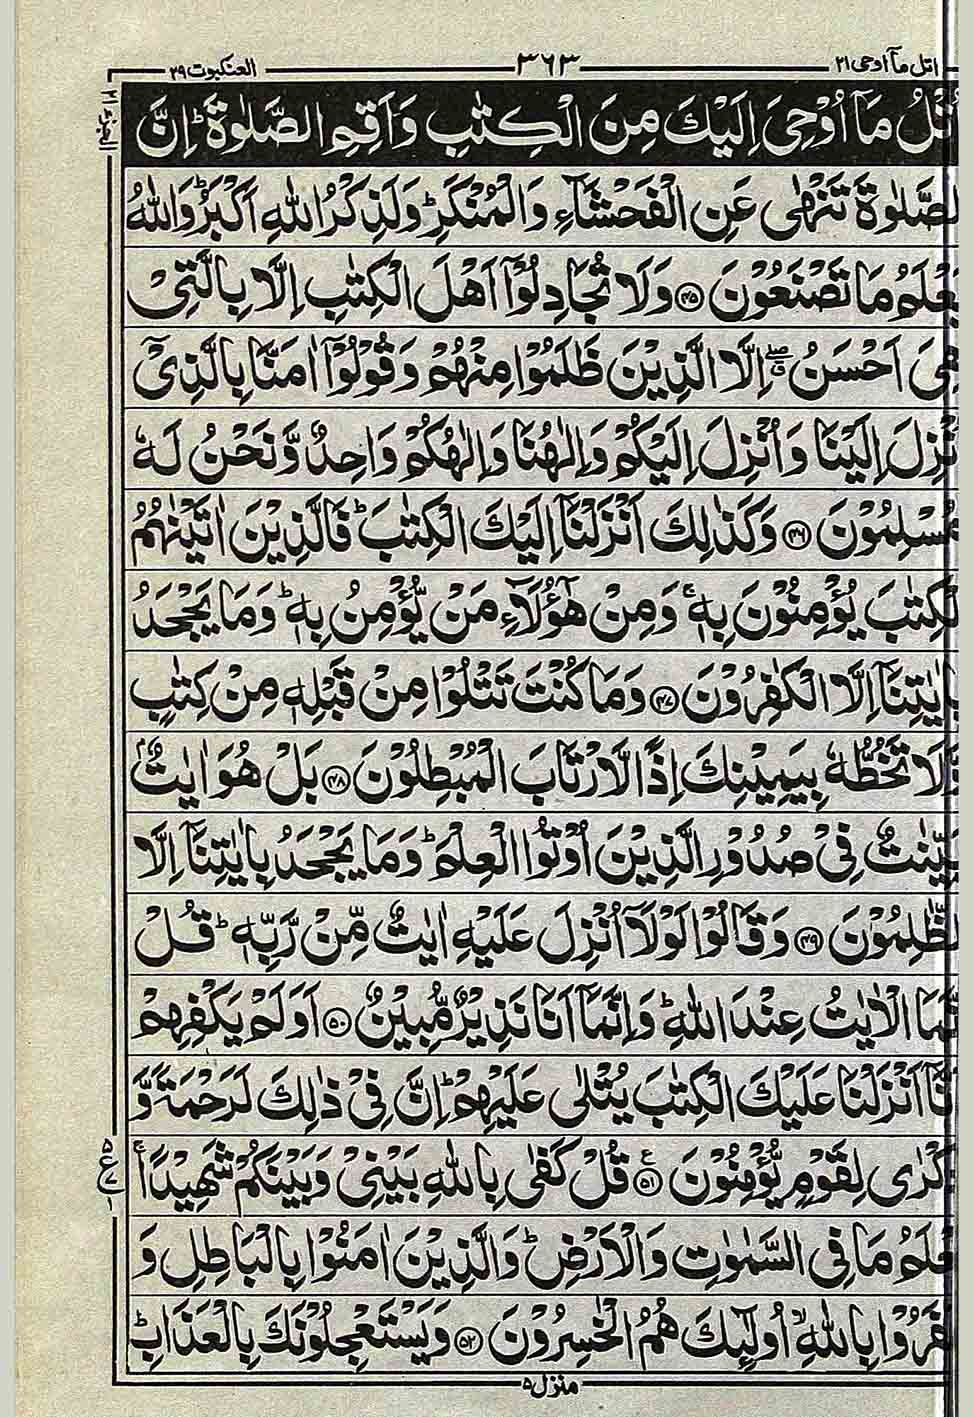 اتل مآ اوحی ۲۱ ۳۶۳ العنکبوت ۲۹
تْلُ مَآ اُوْحِیَ اِلَیْكَ مِنَ الْكِتٰبِ وَ اَقِمِ الصَّلٰوةَ ؕ اِنَّ
الصَّلٰوةَ تَنْهٰی عَنِ الْفَحْشَآءِ وَ الْمُنْكَرِ ؕ وَ لَذِكْرُ اللّٰهِ اَكْبَرُ ؕ وَ اللّٰهُ
یَعْلَمُ مَا تَصْنَعُوْنَ ﴿۴۵﴾ وَ لَا تُجَادِلُوْۤا اَهْلَ الْكِتٰبِ اِلَّا بِالَّتِیْ
هِیَ اَحْسَنُ ۖۗ اِلَّا الَّذِیْنَ ظَلَمُوْا مِنْهُمْ وَ قُوْلُوْۤا اٰمَنَّا بِالَّذِیْۤ
نْزِلَ اِلَیْنَا وَ اُنْزِلَ اِلَیْكُمْ وَ اِلٰهُنَا وَ اِلٰهُكُمْ وَاحِدٌ وَّ نَحْنُ لَهٗ
مُسْلِمُوْنَ ﴿۴۶﴾ وَ كَذٰلِكَ اَنْزَلْنَاۤ اِلَیْكَ الْكِتٰبَ ؕ فَالَّذِیْنَ اٰتَیْنٰهُمُ
لْكِتٰبَ یُؤْمِنُوْنَ بِهٖ ۚ وَ مِنْ هٰۤؤُلَآءِ مَنْ یُّؤْمِنُ بِهٖ ؕ وَ مَا یَجْحَدُ
بِاٰیٰتِنَاۤ اِلَّا الْكٰفِرُوْنَ ﴿۴۷﴾ وَ مَا كُنْتَ تَتْلُوْا مِنْ قَبْلِهٖ مِنْ كِتٰبٍ
وَّ لَا تَخُطُّهٗ بِیَمِیْنِكَ اِذًا لَّارْتَابَ الْمُبْطِلُوْنَ ﴿۴۸﴾ بَلْ هُوَ اٰیٰتٌۢ
بَیِّنٰتٌ فِیْ صُدُوْرِ الَّذِیْنَ اُوْتُوا الْعِلْمَ ؕ وَ مَا یَجْحَدُ بِاٰیٰتِنَاۤ اِلَّا
لظّٰلِمُوْنَ ﴿۴۹﴾ وَ قَالُوْا لَوْلَاۤ اُنْزِلَ عَلَیْهِ اٰیٰتٌ مِّنْ رَّبِّهٖ ؕ قُلْ
نَّمَا الْاٰیٰتُ عِنْدَ اللّٰهِ ؕ وَ اِنَّمَاۤ اَنَا نَذِیْرٌ مُّبِیْنٌ ﴿۵۰﴾ اَوَ لَمْ یَكْفِهِمْ
نَّاۤ اَنْزَلْنَا عَلَیْكَ الْكِتٰبَ یُتْلٰی عَلَیْهِمْ ؕ اِنَّ فِیْ ذٰلِكَ لَرَحْمَةً وَّ
كْرٰی لِقَوْمٍ یُّؤْمِنُوْنَ ﴿۵۱﴾ قُلْ كَفٰی بِاللّٰهِ بَیْنِیْ وَ بَیْنَكُمْ شَهِیْدًا ۚ
عْلَمُ مَا فِی السَّمٰوٰتِ وَ الْاَرْضِ ؕ وَ الَّذِیْنَ اٰمَنُوْا بِالْبَاطِلِ وَ
فَرُوْا بِاللّٰهِ ۙ اُولٰٓىِٕكَ هُمُ الْخٰسِرُوْنَ ﴿۵۲﴾ وَ یَسْتَعْجِلُوْنَكَ بِالْعَذَابِ ؕ
منزل ۵